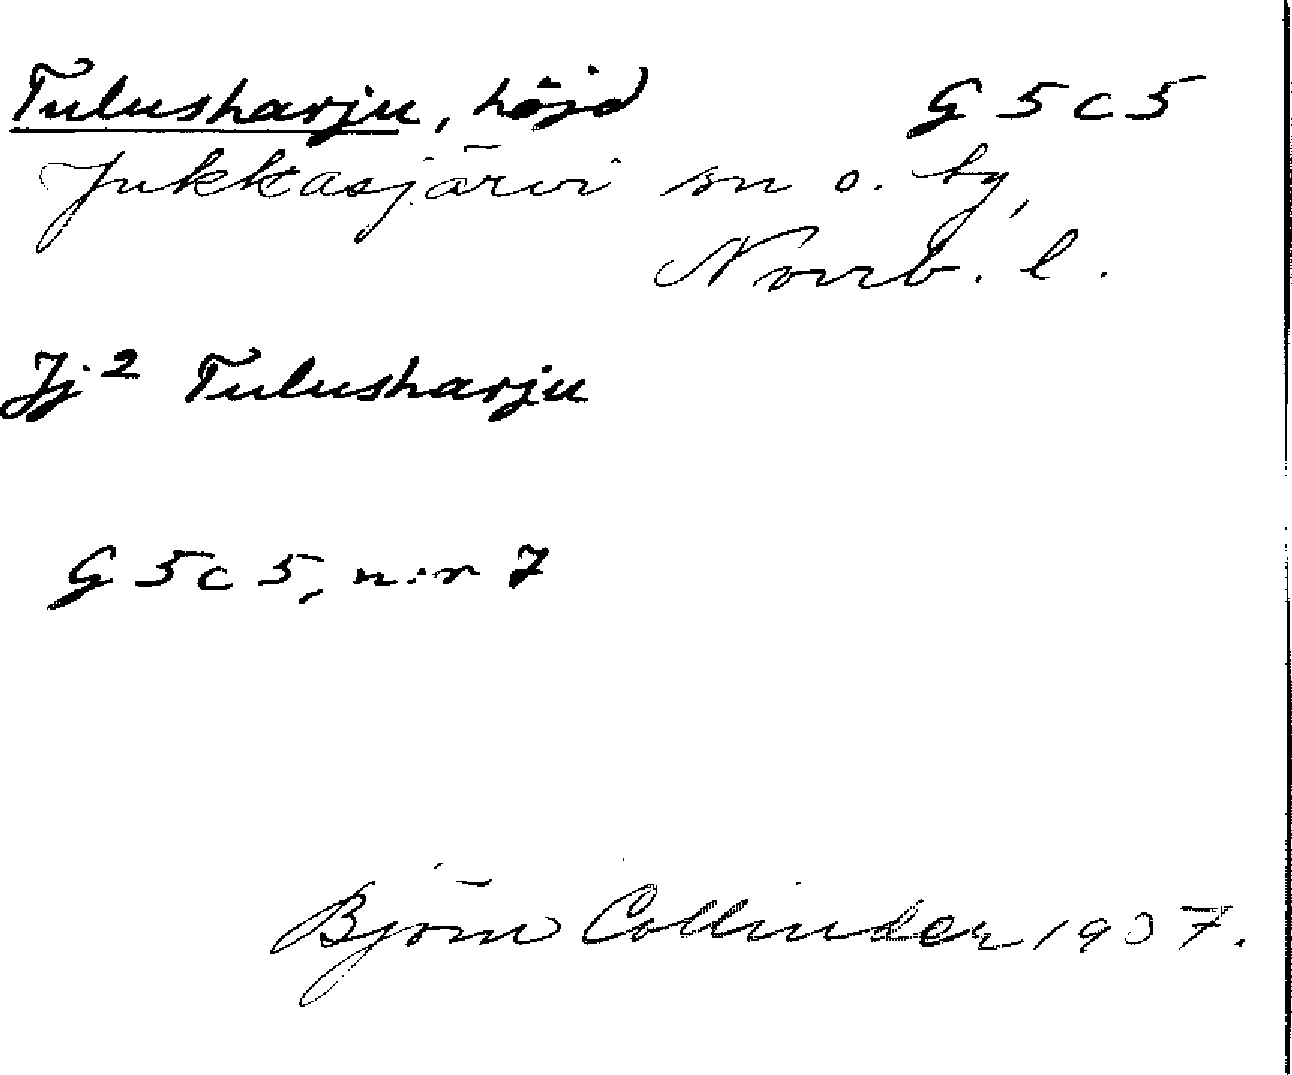 Tulusharju, höjd G 5 c 5
Jukkasjärvi sn o. by,
Norrb. l.
Jj² Tulusharju
G 5 c 5, n:r 7
Björn Collinder 1937.